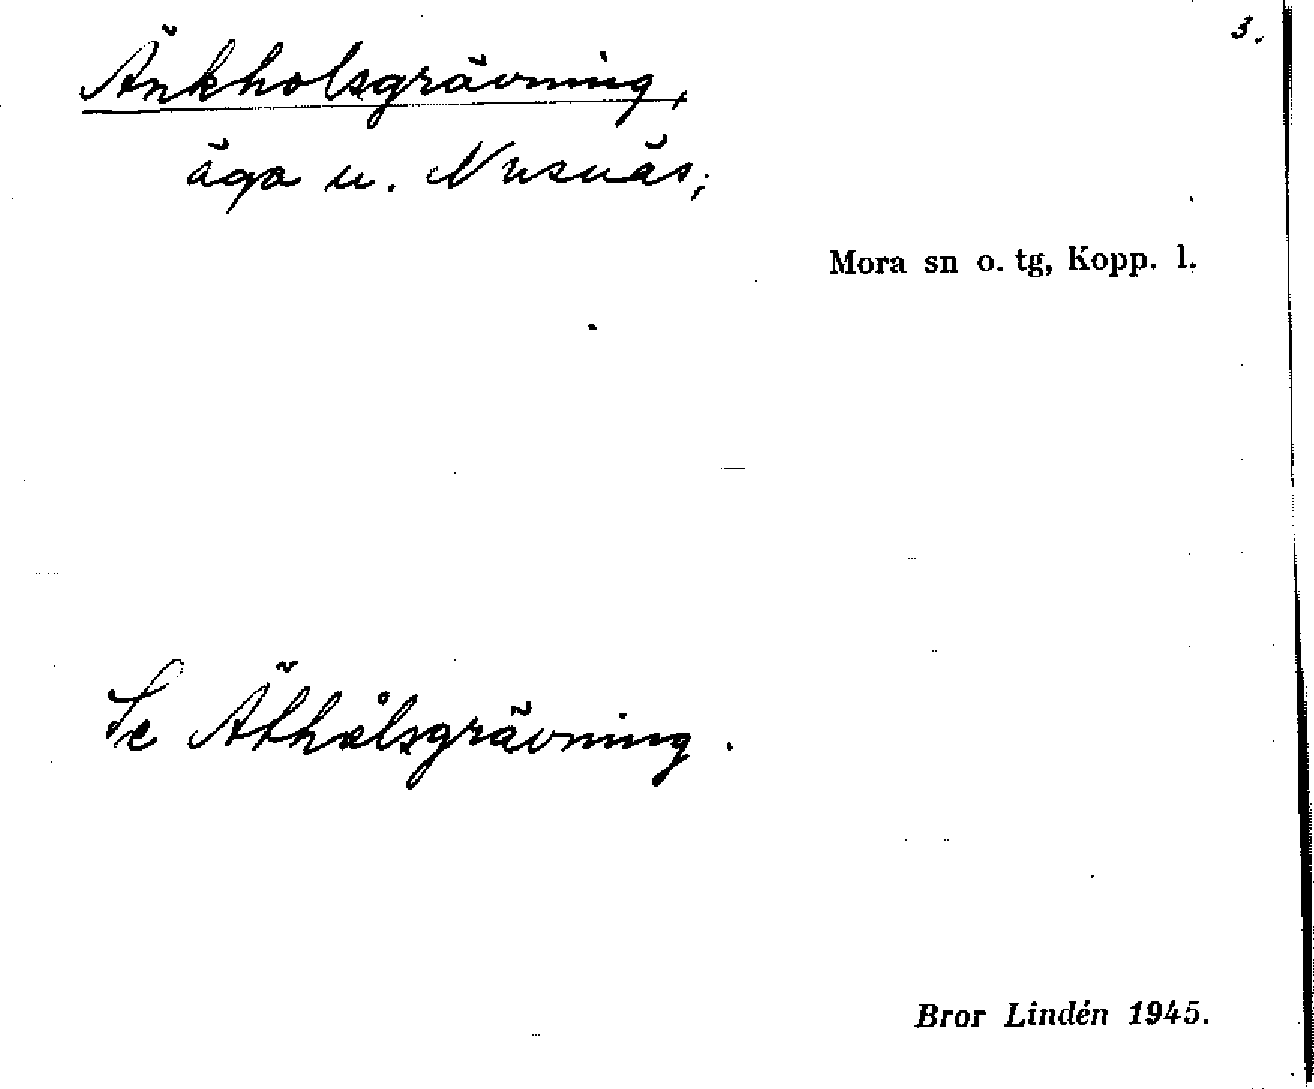 3.
Änkholsgrävning,
äga u. Nusnäs;
Mora sn o. tg, Kopp. l.
Se Äthålsgrävning.
Bror Lindén 1945.